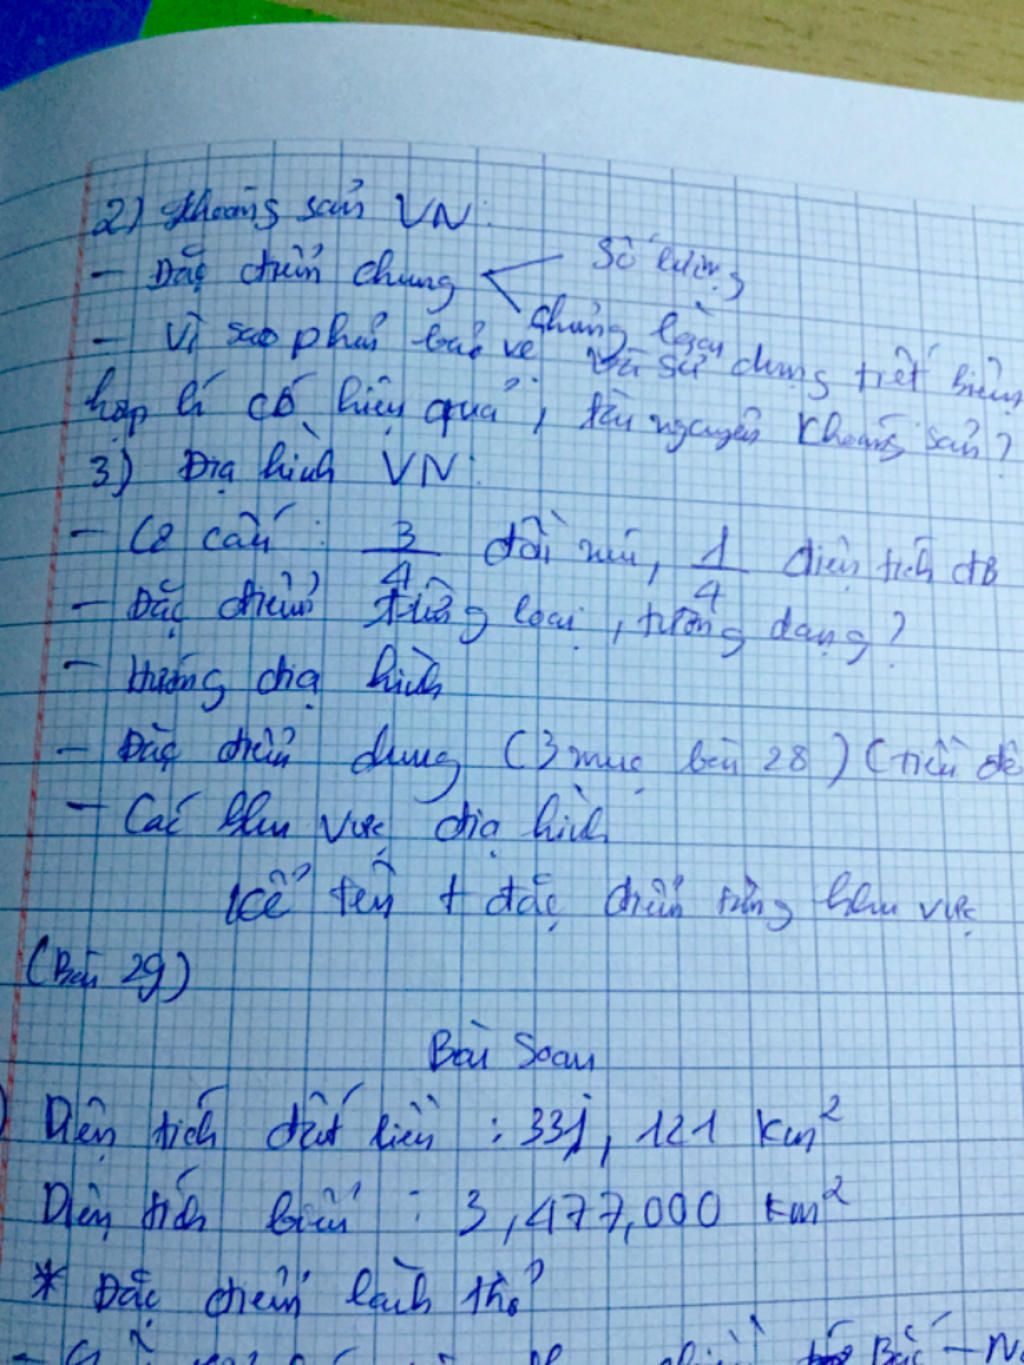 2) Khoáng sản VN:
- Đặc điểm chung < Số lượng
chủng loại
- Vì sao phải bảo vệ và sử dụng tiết kiệm
hợp lí có hiệu quả, tài nguyên khoáng sản?
3) Địa hình VN:
- Cơ cấu: 3/4 đồi núi, 1/4 diện tích ĐB
- Đặc điểm từng loại, từng dạng?
- Hướng địa hình
- Đặc điểm chung (3 mục bài 28) (tiêu đề
- Các khu vực địa hình
Kể tên + đặc điểm từng khu vực
(Bài 29)
Bài Soạn
Diện tích đất liền : 331,121 km²
Diện tích biển : 3,477,000 km²
* Đặc điểm lãnh thổ
Bắc - N